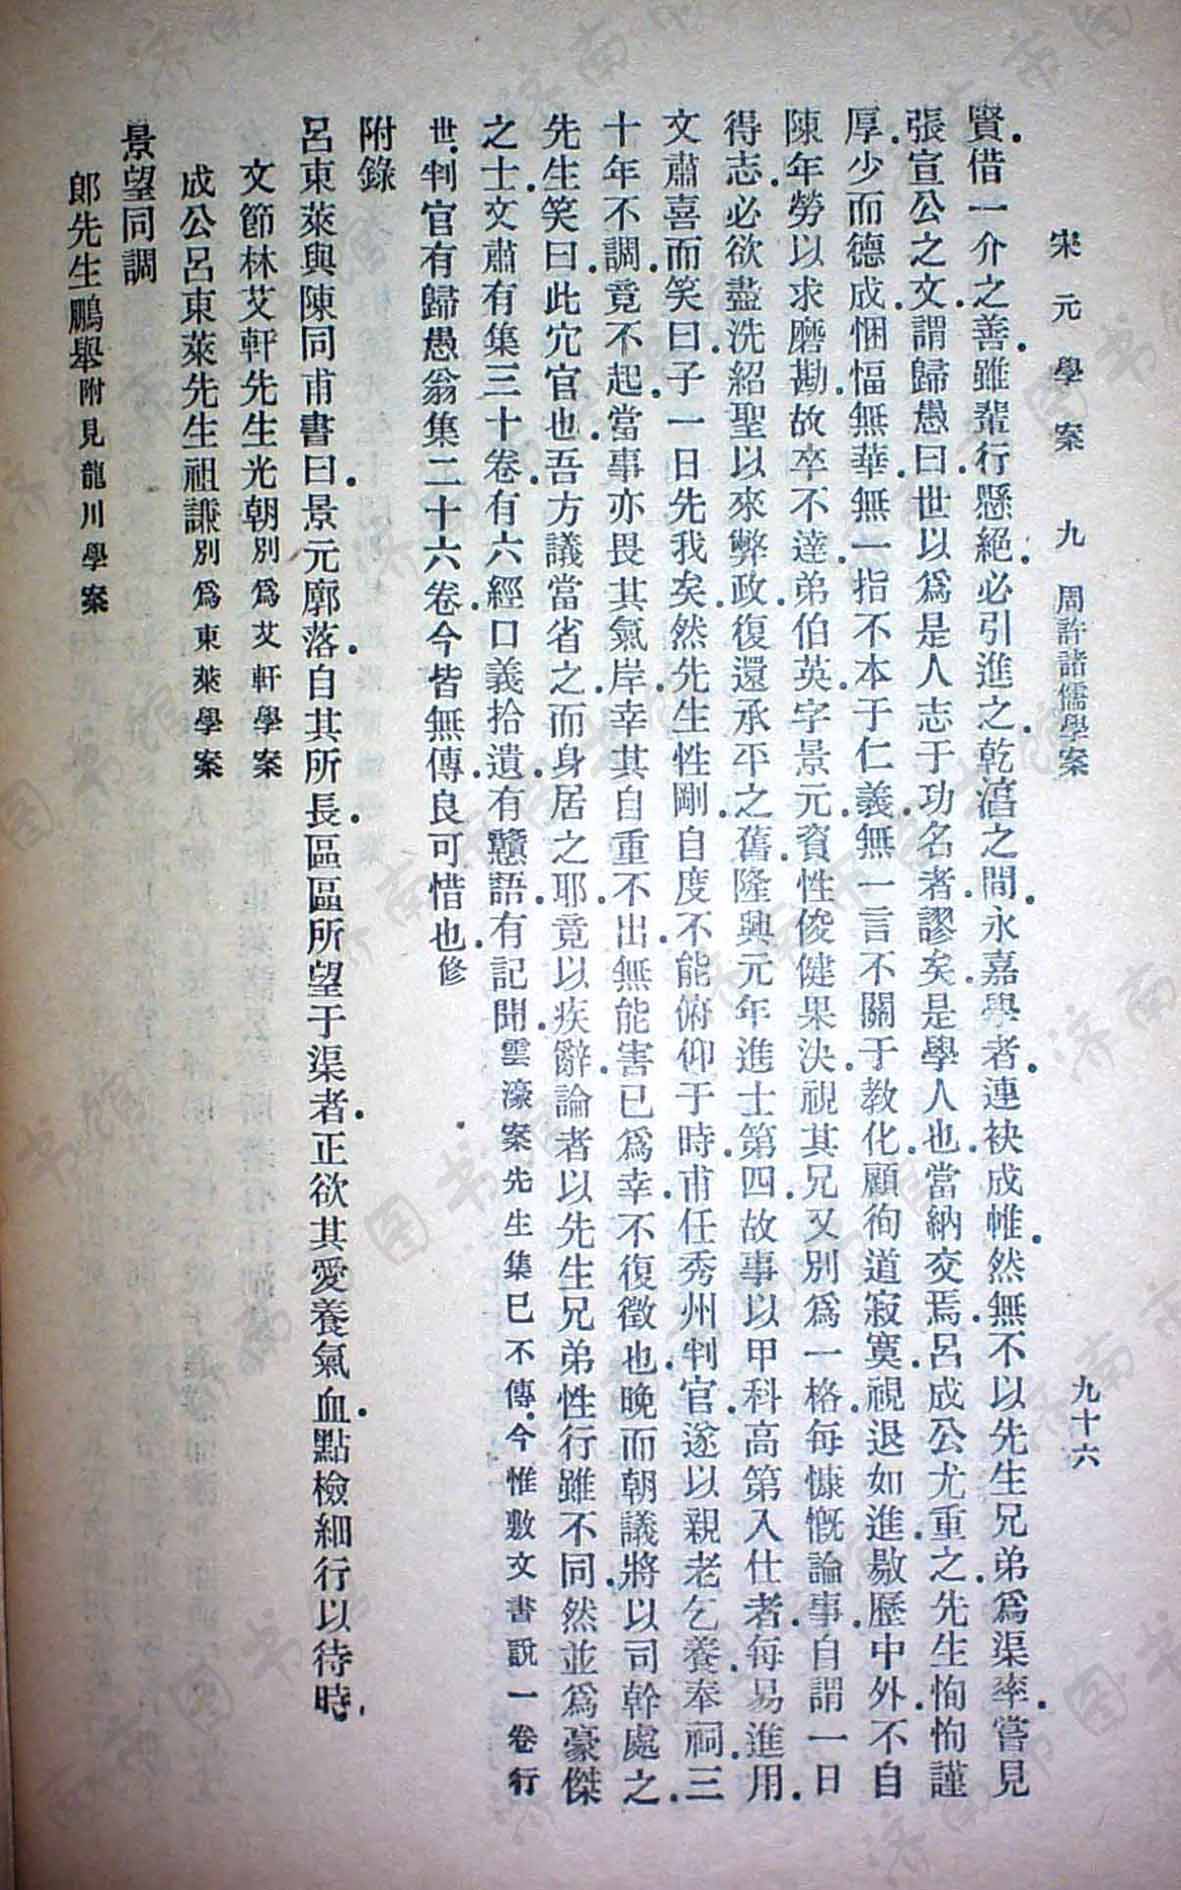 宋元學案 九 周許諸儒學案 九十六
賢借一介之善雖輩行懸絕必引進之乾淳之間永嘉學者連袂成帷然無不以先生兄弟爲渠率嘗見
張宣公之文謂歸愚曰世以爲是人志于功名者謬矣是學人也當納交焉呂成公尤重之先生恂恂謹
厚少而德成悃愊無華無一指不本于仁義無一言不關于教化顧徇道寂寞視退如進敭歷中外不自
陳年勞以求磨勘故卒不達弟伯英字景元資性俊健果決視其兄又別爲一格每慷慨論事自謂一日
得志必欲盡洗紹聖以來弊政復還承平之舊隆興元年進士第四故事以甲科高第入仕者每易進用
文肅喜而笑曰子一日先我矣然先生性剛自度不能俯仰于時甫任秀州判官遂以親老乞養奉祠三
十年不調竟不起當事亦畏其氣岸幸其自重不出無能害已爲幸不復徵也晚而朝議將以司幹處之
先生笑曰此冗官也吾方議當省之而身居之耶竟以疾辭論者以先生兄弟性行雖不同然並爲豪傑
之士文肅有集三十卷有六經口義拾遺有戇語有記聞雲濠案先生集已不傳今惟敷文書說一卷行
世判官有歸愚翁集二十六卷今皆無傳良可惜也修
附錄
呂東萊與陳同甫書曰景元廓落自其所長區區所望于渠者正欲其愛養氣血點檢細行以待時
文節林艾軒先生光朝別爲艾軒學案
成公呂東萊先生祖謙別爲東萊學案
景望同調
郎先生鵬舉附見龍川學案
济南市图书馆